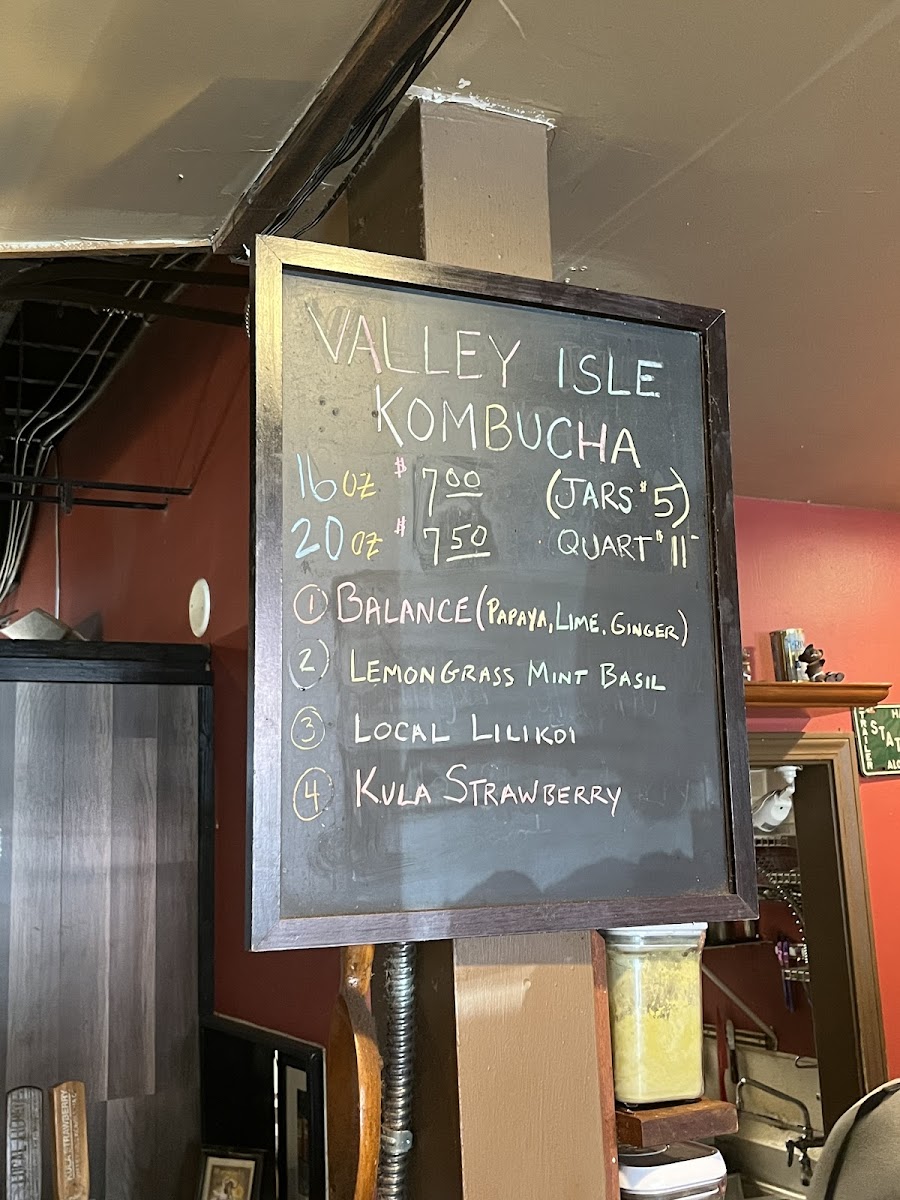 VALLEY ISLE
KOMBUCHA
16 oz $7.00 (JARS $5)
20 oz $7.50 QUART $11-
1 BALANCE (PAPAYA, LIME, GINGER)
2 LEMONGRASS MINT BASIL
3 LOCAL LILIKOI
4 KULA STRAWBERRY
STAT
TRAILER
HA